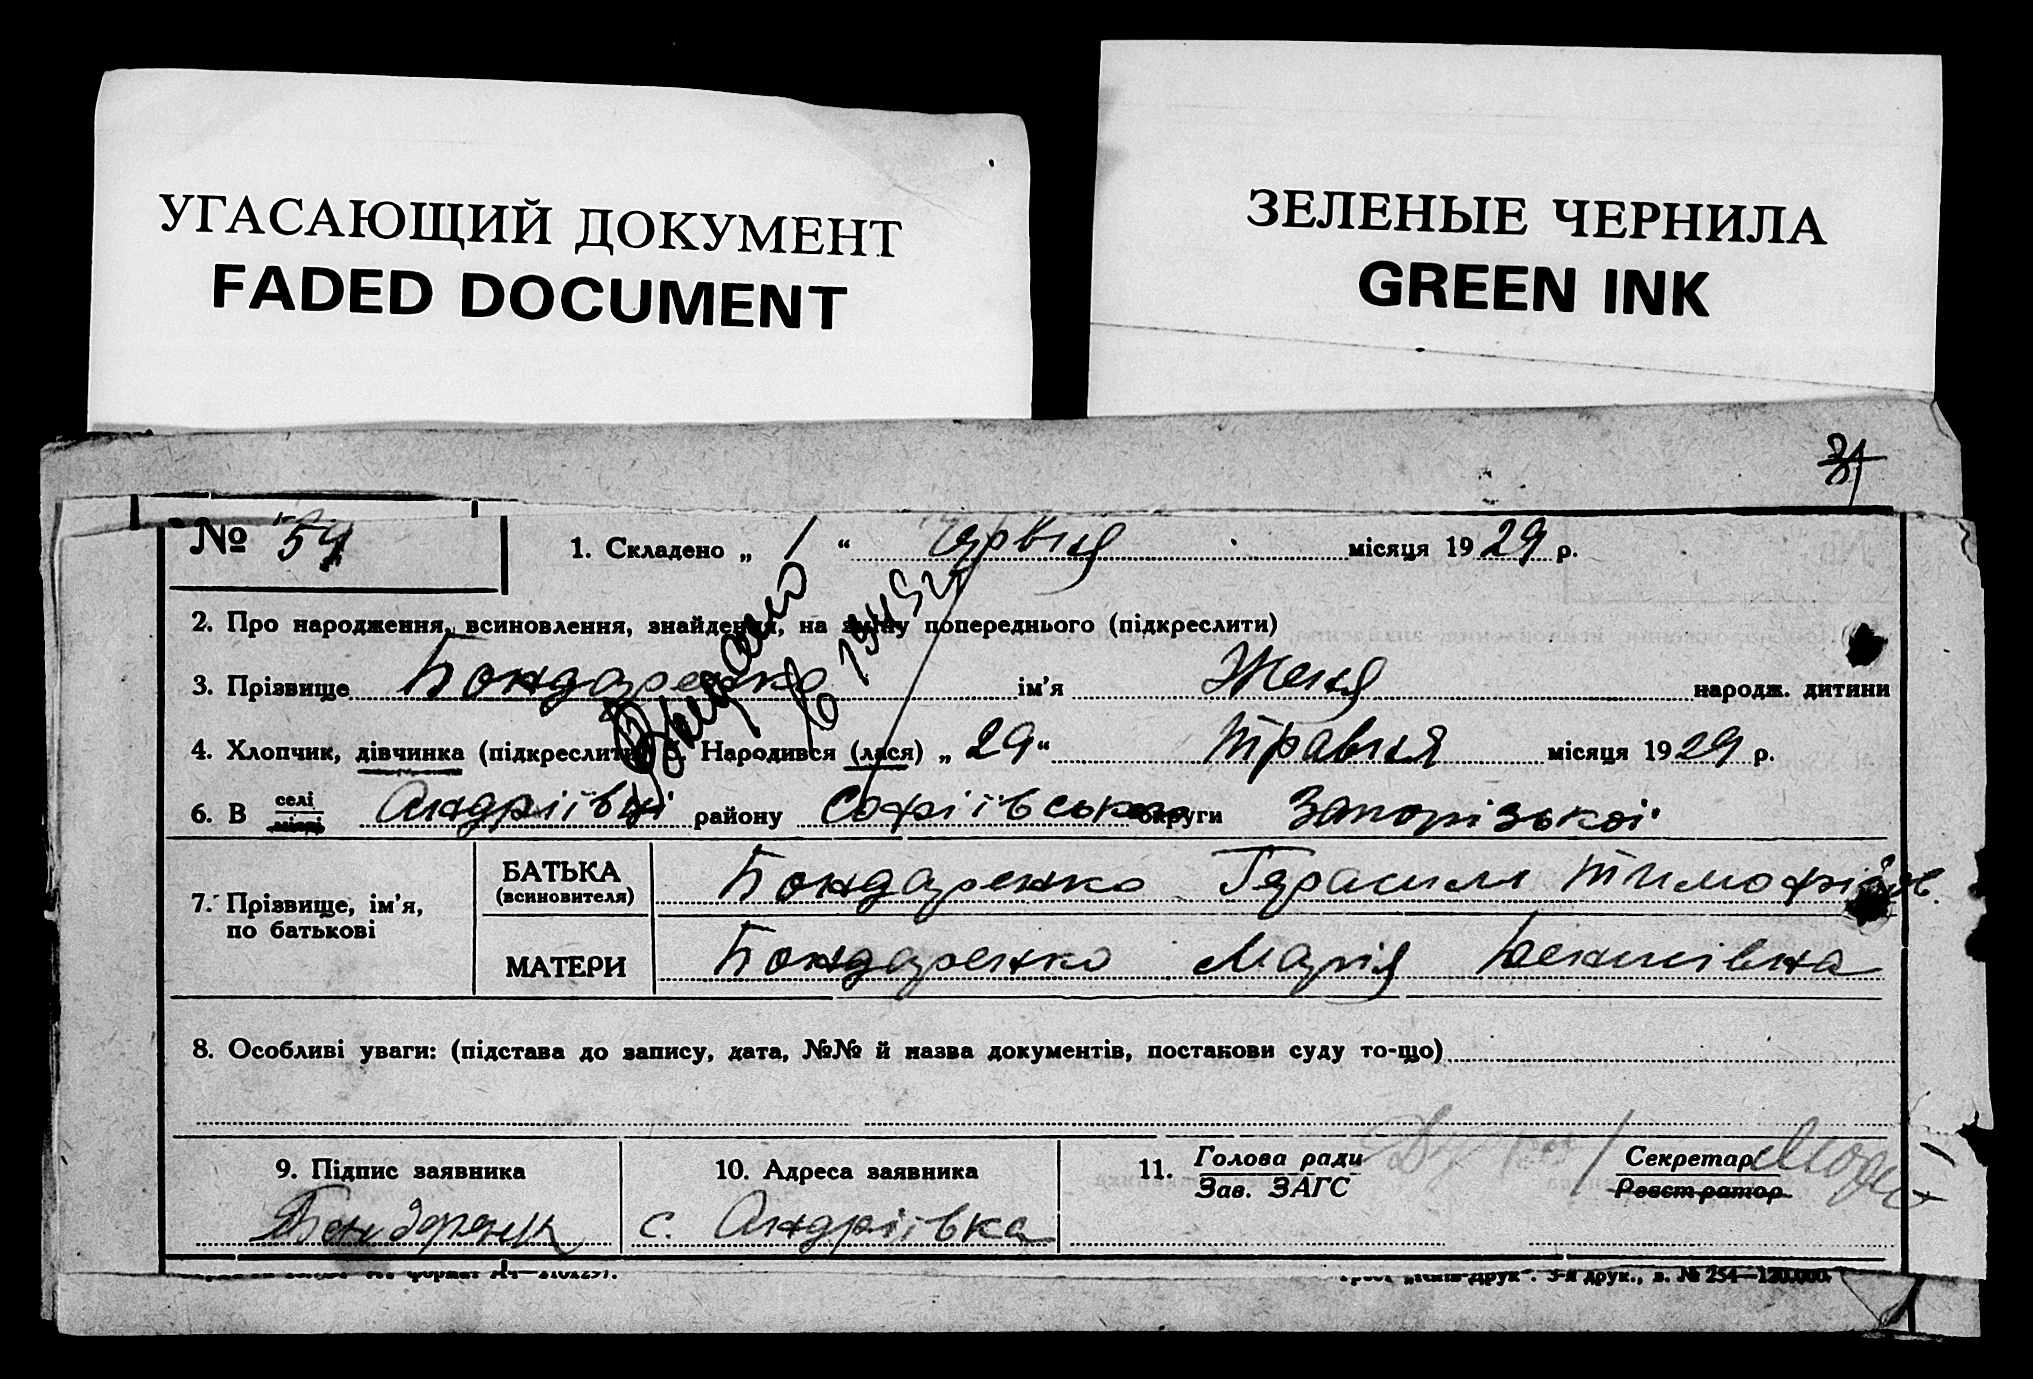 УГАСАЮЩИЙ ДОКУМЕНТ
FADED DOCUMENT
ЗЕЛЕНЫЕ ЧЕРНИЛА
GREEN INK
31
№ 54
1. Складено „ 1 “ Червня місяця 1929 р.
2. Про народження, всиновлення, знайдення, на зміну попереднього (підкреслити)
3. Прізвище Бондаренко ім’я Женя народж. дитини
4. Хлопчик, дівчинка (підкреслити) 5. Народився (лася) „ 29 “ Травня місяця 1929 р.
6. В селі міліі Андріївці району Софіївського округи Запорізької
7. Прізвище, ім’я, по батькові
БАТЬКА (всиновителя) Бондаренко Герасим Тимофійов.
МАТЕРИ Бондаренко Марія Денисівна
8. Особливі уваги: (підстава до запису, дата, №№ й назва документів, постанови суду то-що)
9. Підпис заявника
10. Адреса заявника
11. Голова ради
Зав. ЗАГС
Секретар
Реєстратор
Бондаренк
с. Андріївка
„Київ-Друк“. 3-я друк., в. № 254—120.000.